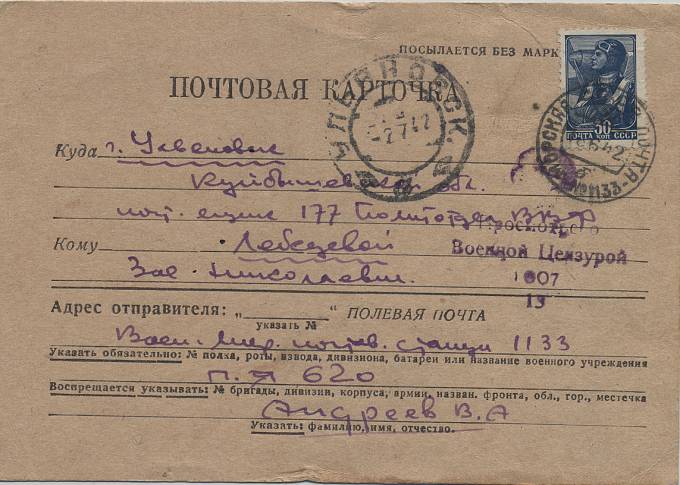 ПОСЫЛАЕТСЯ БЕЗ МАРК
ПОЧТОВАЯ КАРТОЧКА
УЛЬЯНОВСК
2 7 42
50
ПОЧТА КОП СССР
МОРСКАЯ ПОЧТА-1133
Куда г. Ульяновск
Куйбышевская обл.
почт. ящик 177 Политотдел ВВФ
Просмотрено
Военной Цензурой
1007
13
Кому Лебедевой
Зое Николаевн.
Адрес отправителя: „ “ ПОЛЕВАЯ ПОЧТА
указать №
Воен. Мор. почтов. станция 1133
Указать обязательно: № полка, роты, взвода, дивизиона, батареи или название военного учреждения
П. Я 620
Воспрещается указывать: № бригады, дивизии, корпуса, армии, назван. фронта, обл., гор., местечка
Андреев В. А
Указать: фамилию, имя, отчество.